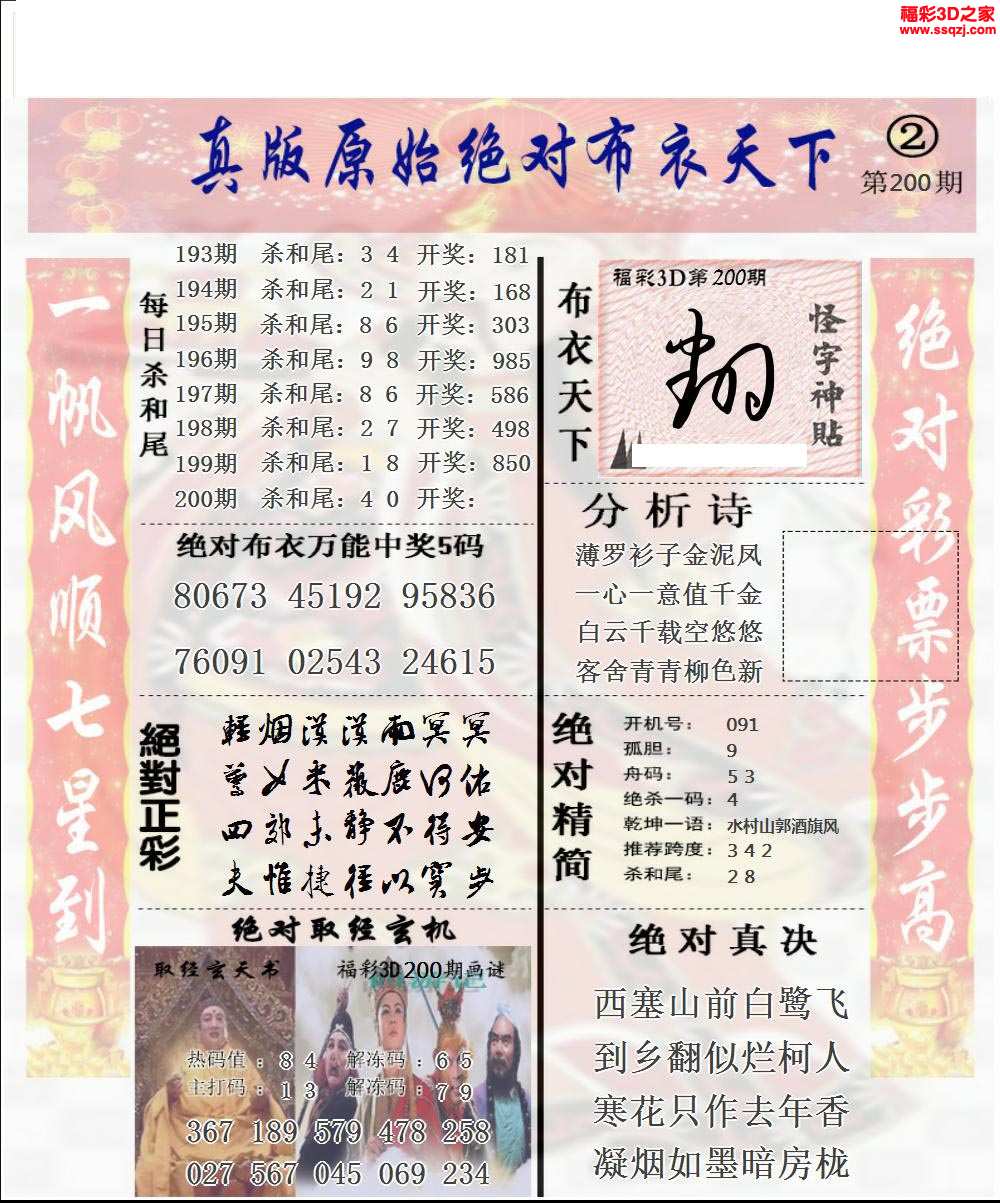 福彩3D之家
www.ssqzj.com
真版原始绝对布衣天下
②
第200期
一帆风顺七星到
每日杀和尾
193期 杀和尾：3 4 开奖：181
194期 杀和尾：2 1 开奖：168
195期 杀和尾：8 6 开奖：303
196期 杀和尾：9 8 开奖：985
197期 杀和尾：8 6 开奖：586
198期 杀和尾：2 7 开奖：498
199期 杀和尾：1 8 开奖：850
200期 杀和尾：4 0 开奖：
绝对布衣万能中奖5码
80673 45192 95836
76091 02543 24615
絕對正彩
輕烟漠漠雨冥冥
四郊未静不得安
夫惟捷径以窘步
绝对取经玄机
取经玄天书
福彩3D200期画谜
热码值：8 4 解冻码：6 5
主打码：1 3 解冻码：7 9
367 189 579 478 258
027 567 045 069 234
布衣天下
福彩3D第200期
怪字神貼
分析诗
薄罗衫子金泥凤
一心一意值千金
白云千载空悠悠
客舍青青柳色新
绝对精简
开机号：091
孤胆：9
舟码：5 3
绝杀一码：4
乾坤一语：水村山郭酒旗风
推荐跨度：3 4 2
杀和尾：2 8
绝对真决
西塞山前白鹭飞
到乡翻似烂柯人
寒花只作去年香
凝烟如墨暗房栊
绝对彩票步步高